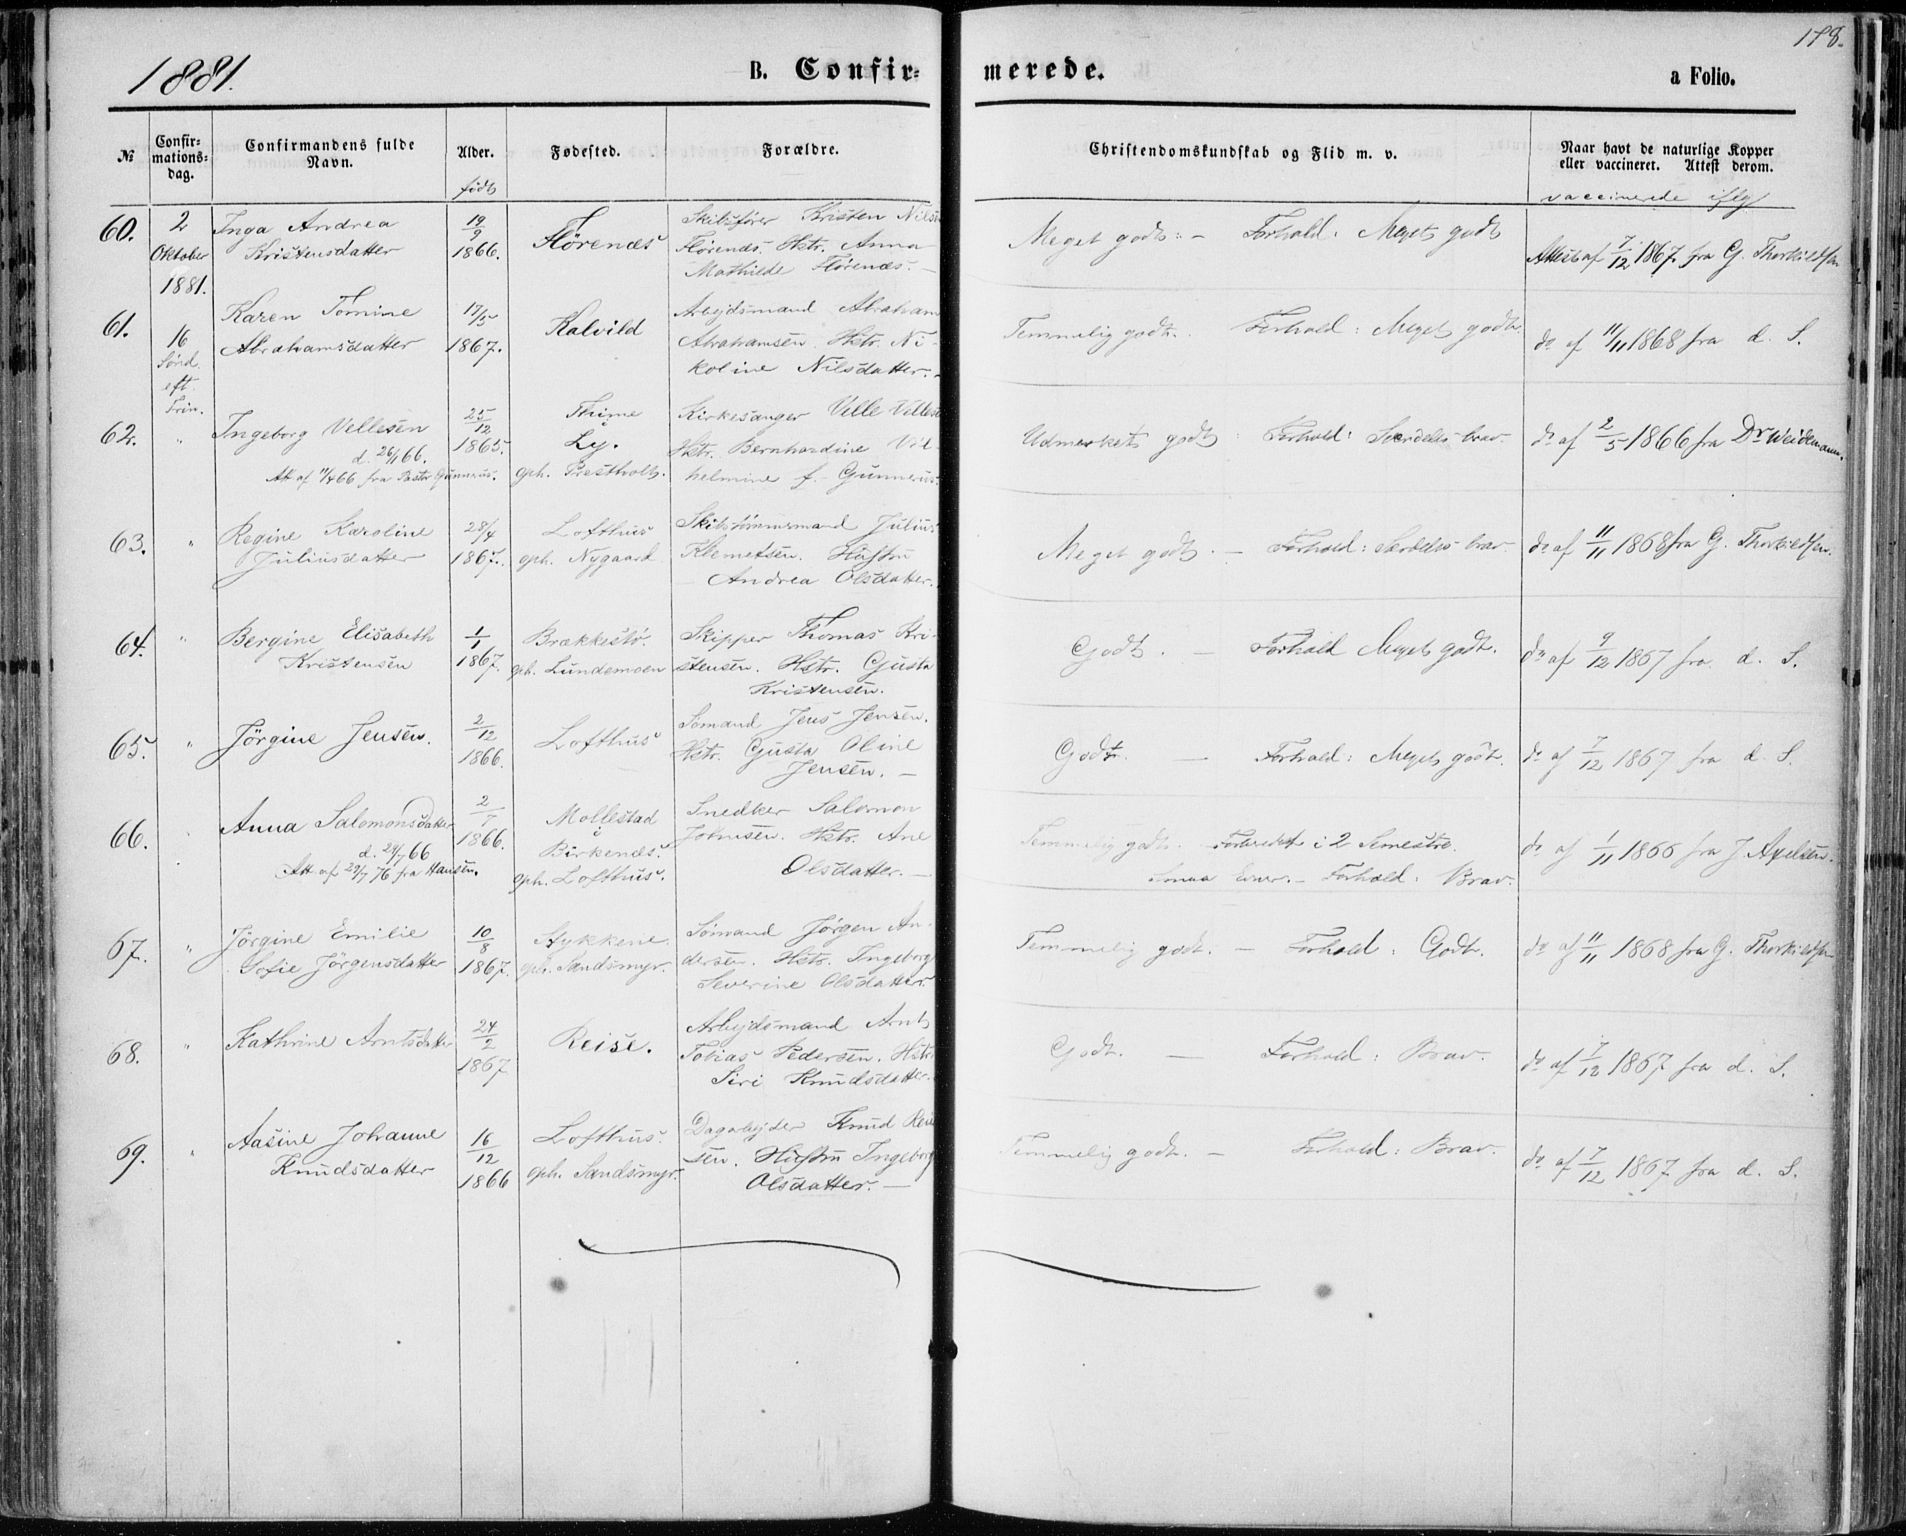 1881.
B. Confir-
merede.
a Folio.
178.
№
Confir-
mations-
dag.
Confirmandens fulde
Navn.
Alder.
født
Fødested.
Forældre.
Christendomskundskab og Flid m. v.
Naar havt de naturlige Kopper
eller vaccineret. Attest derom.
vaccinerede iflg
60.
2
Oktober
1881.
16
Sønd.
eft.
Trin.
Inga Andrea
Kristensdatter
19/9
1866.
Flørenæs
Skibsfører Kristen Nils
Flørenæs. Hstr. Anna
Mathilde Flørenæs. –
Meget godt: – Forhold: Meget godt
Attest af 7/12 1867. fra G. Thorkildsen
61.
Karen Tomine
Abrahamsdatter
17/5
1867.
Kalvild
Arbejdsmand Abraham
Abrahamsen. Hstr. Ni-
koline Nilsdatter. –
Temmelig godt. Forhold: Meget godt
do af 11/11 1868 fra d. S.
62.
"
Ingeborg Vellesen
d. 26/1 66.
Att af 11/4 66 fra Pastor Gunnerus.
25/12
1865.
Thime
Ly.
oph. Prestholt.
Kirkesanger Velle Velles
Hstr. Bernhardine Vil-
helmine f. Gunnerus.
Udmerket godt : Forhold: Særdeles brav.
do af 2/5 1866 fra Dr Weidemann.
63.
"
Regine Karoline
Juliusdatter
28/4
1867.
Lofthus
oph. Nygaard
Skibstømmermand Julius
Klemetsen. Hustru
– Andrea Olsdatter.
Meget godt. – Forhold: Særdeles brav.
do af 11/11 1868 fra G. Thorkildsen.
64.
"
Bergine Elisabeth
Kristensen
1/1
1867.
Brækkestø.
oph. Lundemoen
Skipper Thomas Kri-
stensen. Hstr. Gusta
Kristensen.
Godt. – Forhold Meget godt.
do af 9/12 1867 fra d. S.
65.
"
Jörgine Jensen.
2/12
1866.
Lofthus
Sömand Jens Jensen.
Hstr. Gusta Oline
Jensen. –
Godt. – Forhold: Meget godt.
do af 7/12 1867 fra d. S.
66.
Anna Salomonsdatter
d. 24/7 66
Att af 29/7 76 fra Hansen.
2/7
1866.
Mollestad
i
Birkenæs.
oph. Lofthus.
Snedker Salomon
Johnsen. Hstr. Ane
Olsdatter. –
Temmelig godt. Forberedet i 2 Semestre.
Smaa Evner. – Forhold: Brav.
do af 1/11 1866 fra J. Axelsen.
67.
"
Jörgine Emilie
Sofie Jörgensdatter
10/8
1867.
Stykkene.
oph. Sandsmyr.
Sömand Jörgen An-
dersen. Hstr. Ingeborg
Severine Olsdatter.
Temmelig godt. – Forhold: Godt.
do af 11/11 1868 fra G. Thorkildsen
68.
"
Kathrine Arntsdatter
24/2
1867
Reise.
Arbejdsmand Arnt
Tobias Pedersen. Hstr.
Siri Knudsdatter.
Godt. – Forhold: Brav.
do af 7/12 1867 fra d. S.
69.
"
Aasine Johanne
Knudsdatter
16/12
1866
Lofthus.
oph. Sandsmyr.
Dagarbejder Knud Reier
sen. Hustru Ingeborg
Olsdatter. –
Temmelig godt. – Forhold: Brav.
do af 7/12 1867 fra d. S.